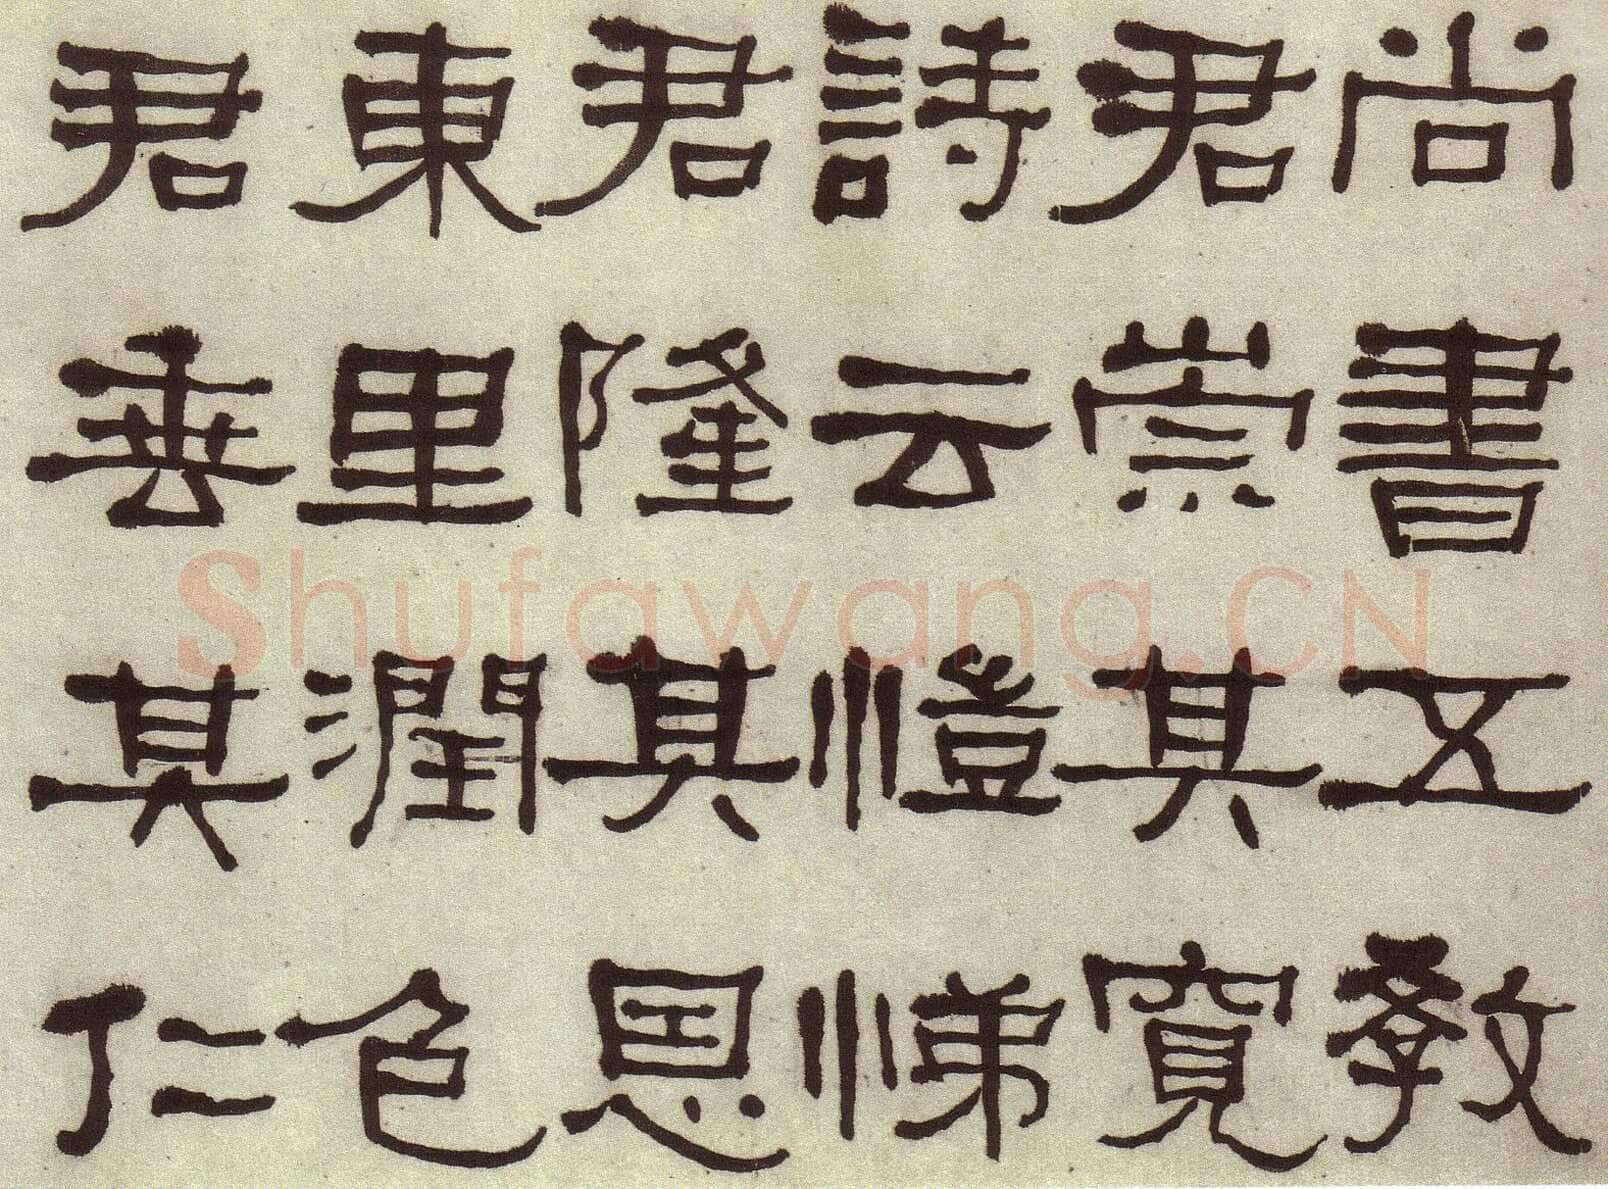 尚書五教
君崇其寬
詩云愷悌
君隆其恩
東里潤色
君垂其仁
Shufawang.CN